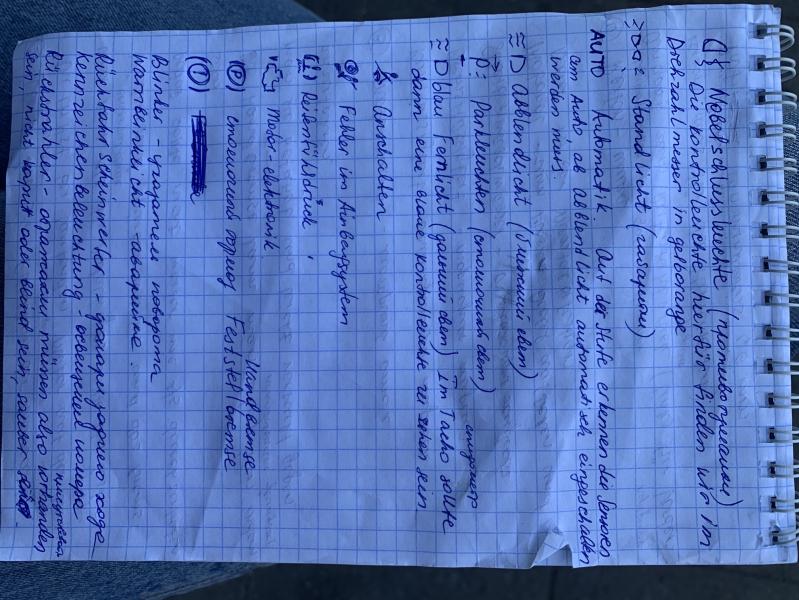 Nebelschlussleuchte (противотуманки)
Die Kontrolleuchte hierfür finden wir im
Drehzahlmesser in gelborange
Standlicht (габариты)
AUTO Automatik. Auf der Stufe erkennen die Sensoren
am Auto, ob Abblendlicht automatisch eingeschalten
werden muss.
D Abblendlicht (ближний свет)
P Parkleuchten (стояночный свет)
D blau Fernlicht (дальний свет) Im Tacho sollte
dann eine blaue Kontrolleuchte zu sehen sein
Anschalten
Fehler im Airbagsystem
(!) Reifenfülldruck
Motor-elektronik
(P) стояночный тормоз Feststellbremse
Handbremse
(!)
Blinker - указатели поворота
Warnblinklicht - аварийка.
Rückfahrscheinwerfer - фонари заднего хода
Kennzeichenbeleuchtung - освещение номера
Rückstrahler - müssen also vorhanden
sein, nicht kaputt oder blind sein, sauber